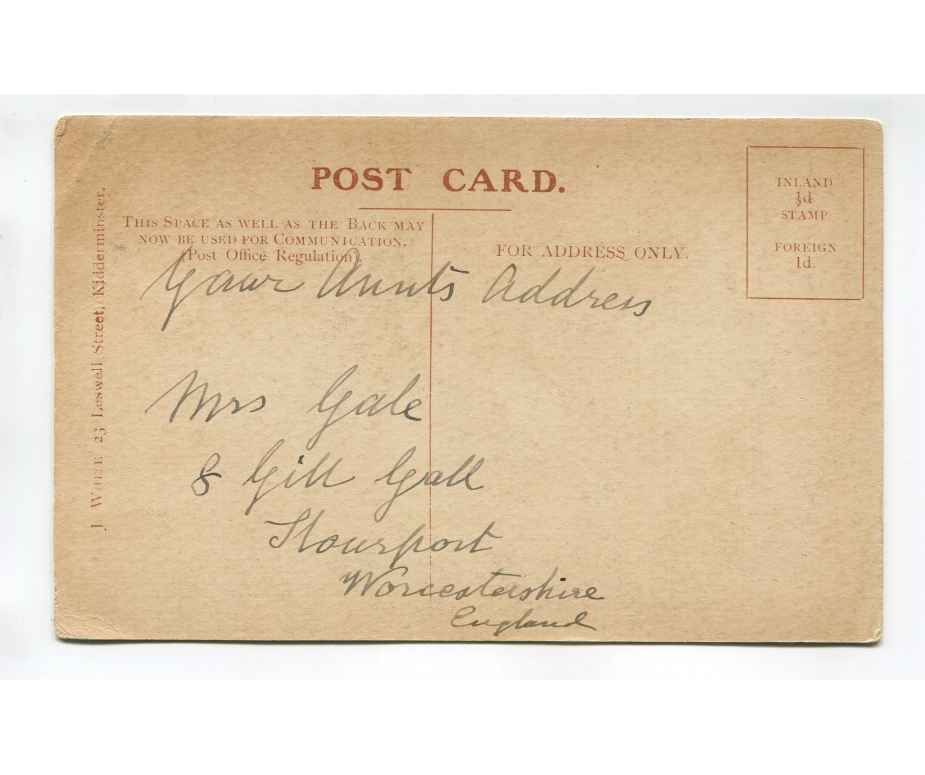 POST CARD.
THIS SPACE AS WELL AS THE BACK MAY
NOW BE USED FOR COMMUNICATION.
(Post Office Regulation).
FOR ADDRESS ONLY.
INLAND
½d
STAMP
FOREIGN
1d.
J. WHITE 23 Leswell Street, Kidderminster.
Your Aunts Address
Mrs Gale
8 Gill Gall
Stourport
Worcestershire
England